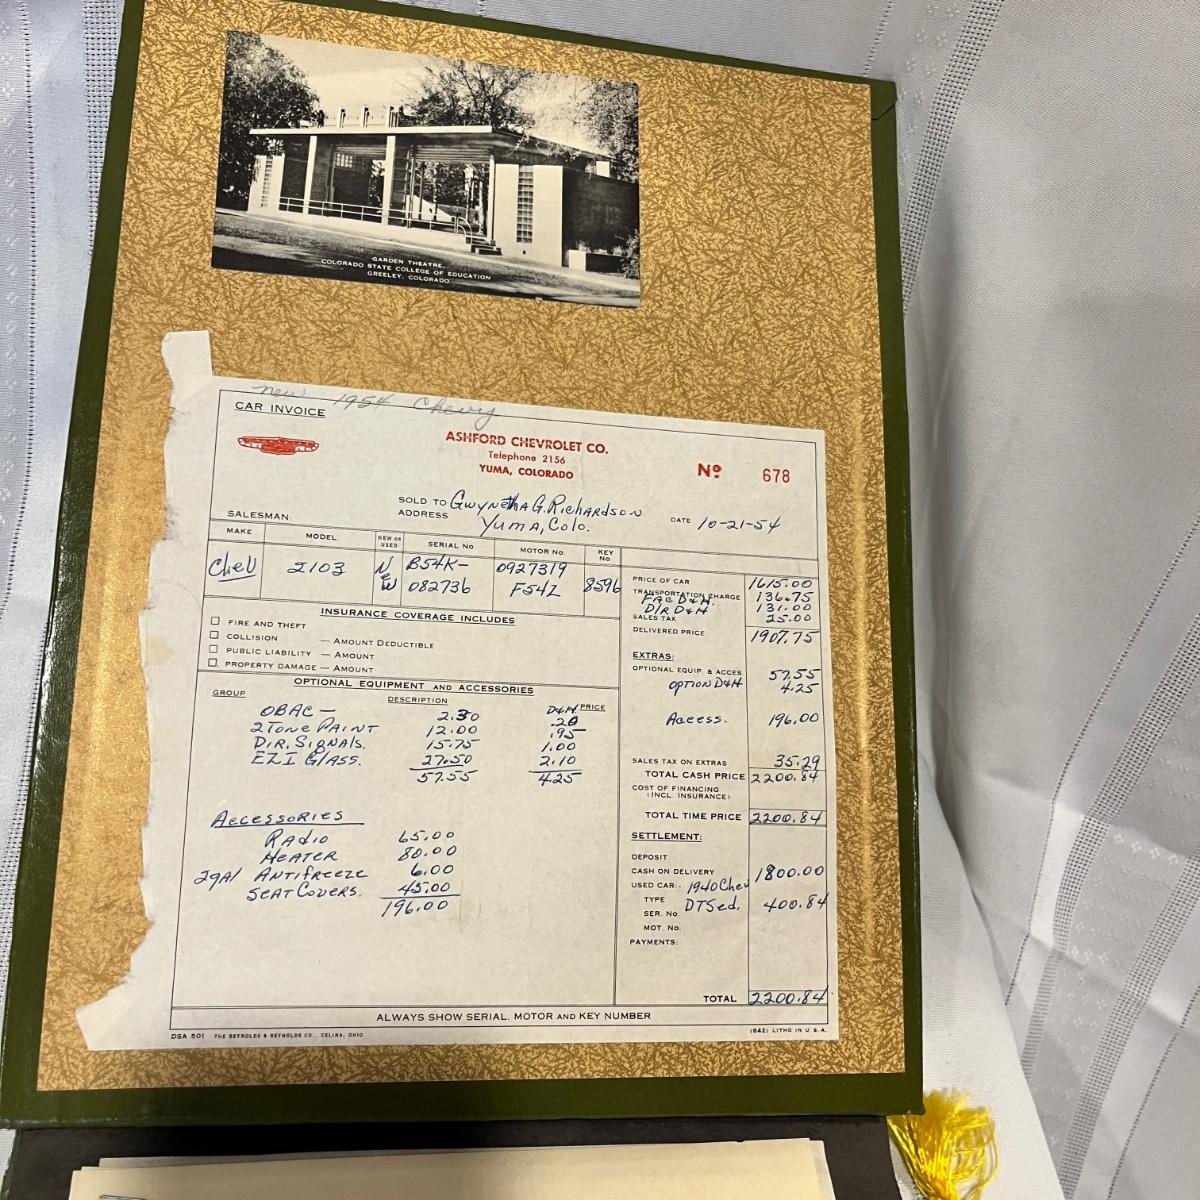 GARDEN THEATRE,
COLORADO STATE COLLEGE OF EDUCATION
GREELEY, COLORADO
new 1954 Chevy
CAR INVOICE
ASHFORD CHEVROLET CO.
Telephone 2156
YUMA, COLORADO
No 678
SOLD TO Gwynetha G. Richardson
ADDRESS Yuma, Colo.
DATE 10-21-54
SALESMAN
MAKE MODEL NEW OR USED SERIAL No MOTOR No KEY No
Chev 2103 New B54K- 0927319
082736 F54Z 8596
INSURANCE COVERAGE INCLUDES
FIRE AND THEFT
COLLISION — AMOUNT DEDUCTIBLE
PUBLIC LIABILITY — AMOUNT
PROPERTY DAMAGE — AMOUNT
OPTIONAL EQUIPMENT AND ACCESSORIES
GROUP DESCRIPTION D&H PRICE
OBAC — 2.30 .20
2 Tone PAINT 12.00 .95
Dir. Signals. 15.75 1.00
EZI Glass. 27.50 2.10
57.55 4.25
Accessories
Radio 65.00
Heater 80.00
2gal Antifreeze 6.00
Seat Covers. 45.00
196.00
PRICE OF CAR 1615.00
TRANSPORTATION CHARGE 136.75
FAC D&H.
DLR D&H 131.00
SALES TAX 25.00
DELIVERED PRICE 1907.75
EXTRAS:
OPTIONAL EQUIP. & ACCES 57.55
OPTION D&H 4.25
Access. 196.00
SALES TAX ON EXTRAS 35.29
TOTAL CASH PRICE 2200.84
COST OF FINANCING
(INCL. INSURANCE)
TOTAL TIME PRICE 2200.84
SETTLEMENT:
DEPOSIT
CASH ON DELIVERY 1800.00
USED CAR:- 1940 Chev
TYPE DTSed. 400.84
SER. No.
MOT. No.
PAYMENTS:
TOTAL 2200.84
ALWAYS SHOW SERIAL, MOTOR AND KEY NUMBER
DSA 501 THE REYNOLDS & REYNOLDS CO., CELINA, OHIO
(842) LITHO IN U.S.A.